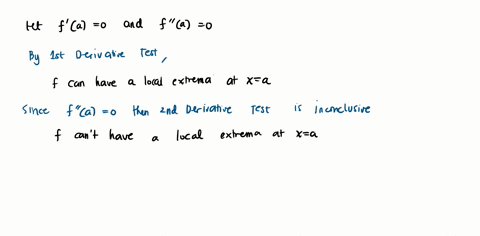 let f'(a) =0 and f"(a) =0
By 1st Derivative Test,
f can have a local extrema at x=a
Since f"(a) =0 then 2nd Derivative Test is inconclusive
f can't have a local extrema at x=a